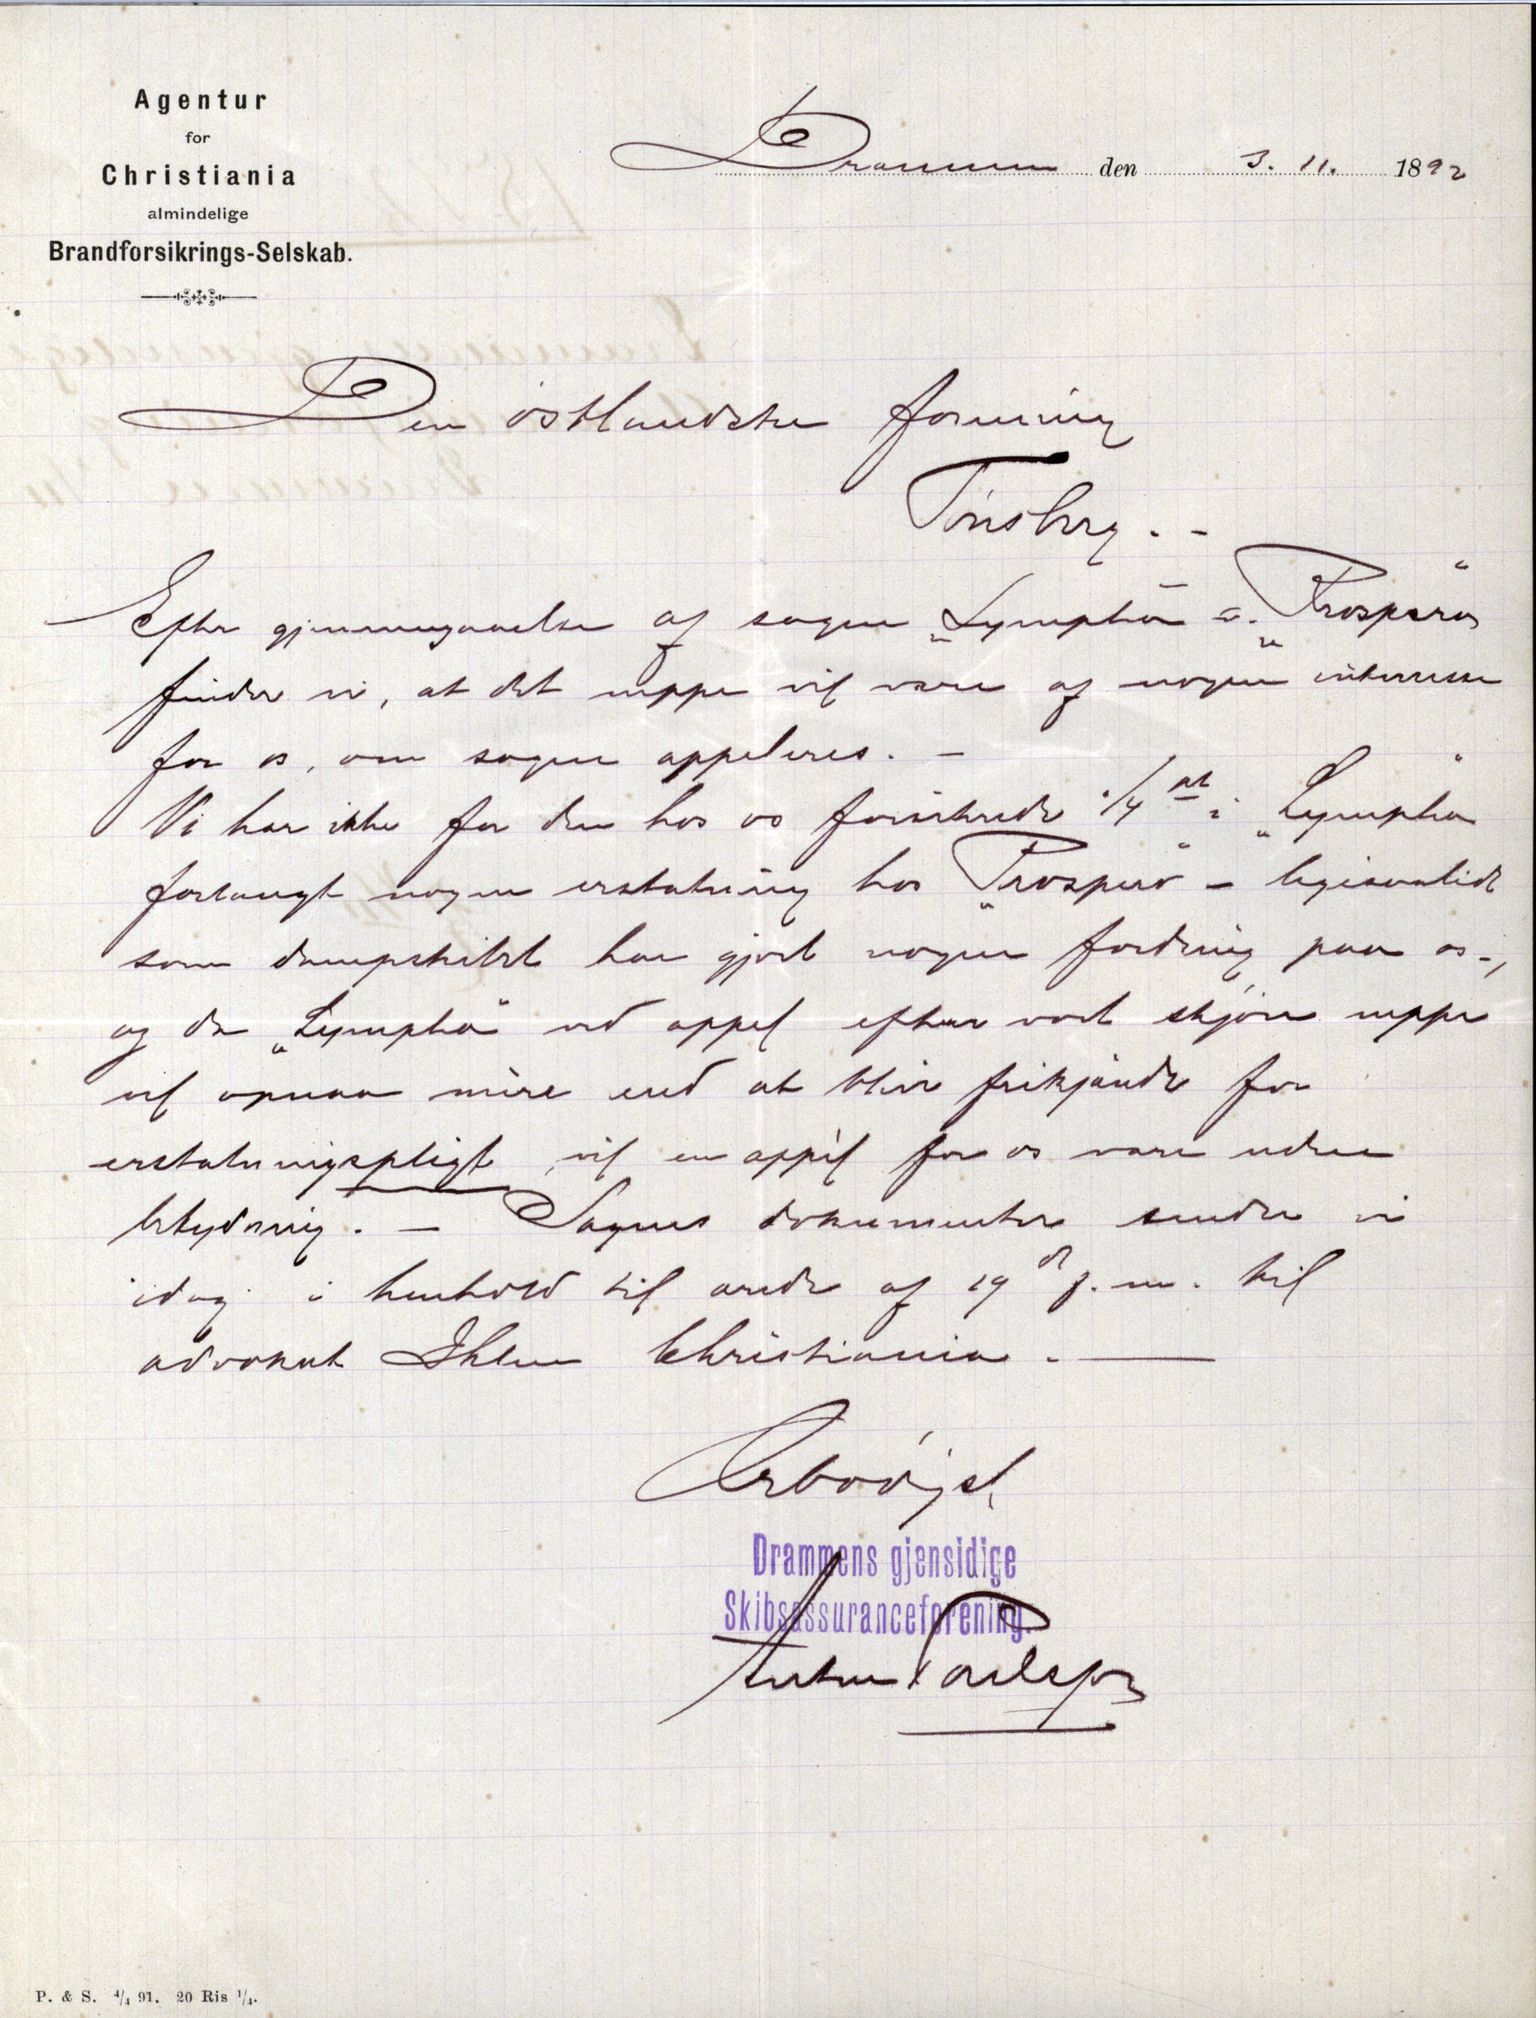 Agentur
for
Christiania
almindelige
Brandforsikrings-Selskab.
Drammen den 3. 11. 1892
Den östlandske forening
Tönsberg. -
Efter gjennemgaaelse af sagen „Lympha" c. „Prospero"
finder vi, at det neppe vil være af nogen interesse
for os, om sagen appeleres. -
Vi har ikke for den hos os forsikrede 1/4 pt i „Lympha"
forlangt nogen erstatning hos „Prospero" - ligesaalidt
som dampskibet har gjort nogen fordring paa os -,
og da „Lympha" ved appel efter vort skjön neppe
vil opnaa mere end at blive frikjendt for
erstatningspligt, vil en appel for os være uden
betydning. - Sagens dokumenter sender vi
idag i henhold til ordre af 19 ds f. m. til
advokat Ihlen Christiania. -
Ærbödigst
Drammens gjensidige
Skibsassuranceforening.
P. & S. 4/4 91. 20 Ris 1/4.